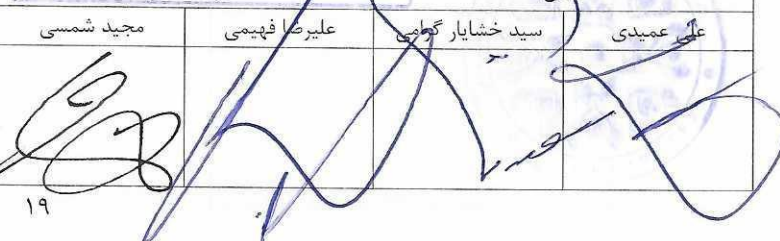 علی عمیدی سید خشایار گرامی علیرضا فهیمی مجید شمسی
۱۹